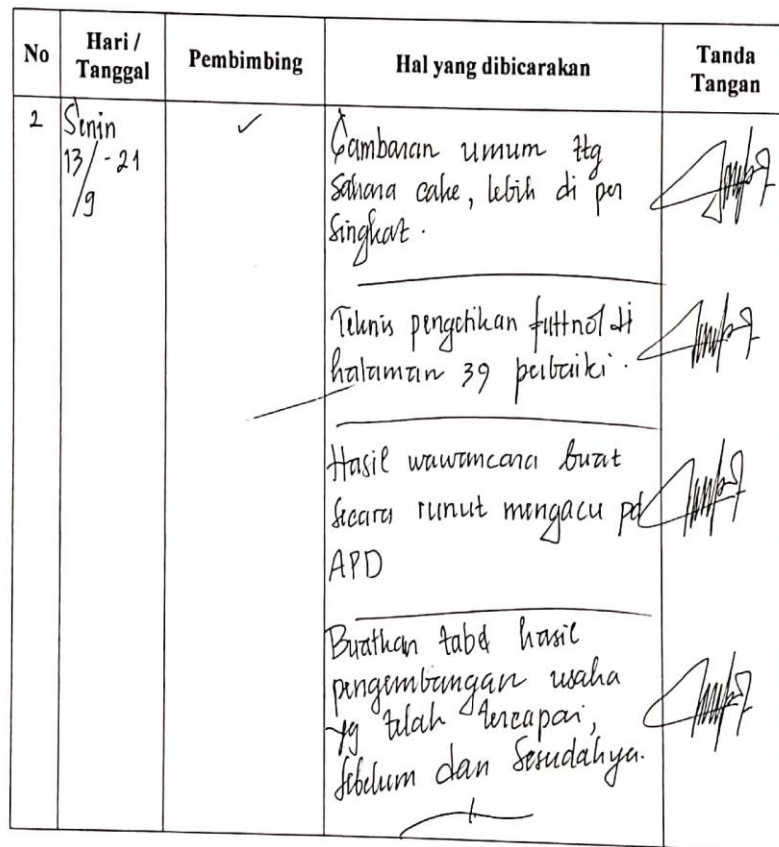 No
Hari / Tanggal
Pembimbing
Hal yang dibicarakan
Tanda Tangan
2
Senin
13/ - 21
/9
✓
Gambaran umum ttg
Sahara cake, lebih di per
singkat.
Teknis pengetikan futtnot di
halaman 39 perbaiki.
Hasil wawancara buat
secara runut mengacu pd
APD
Buatkan tabel hasil
pengembangan usaha
yg telah tercapai,
sebelum dan sesudahya.